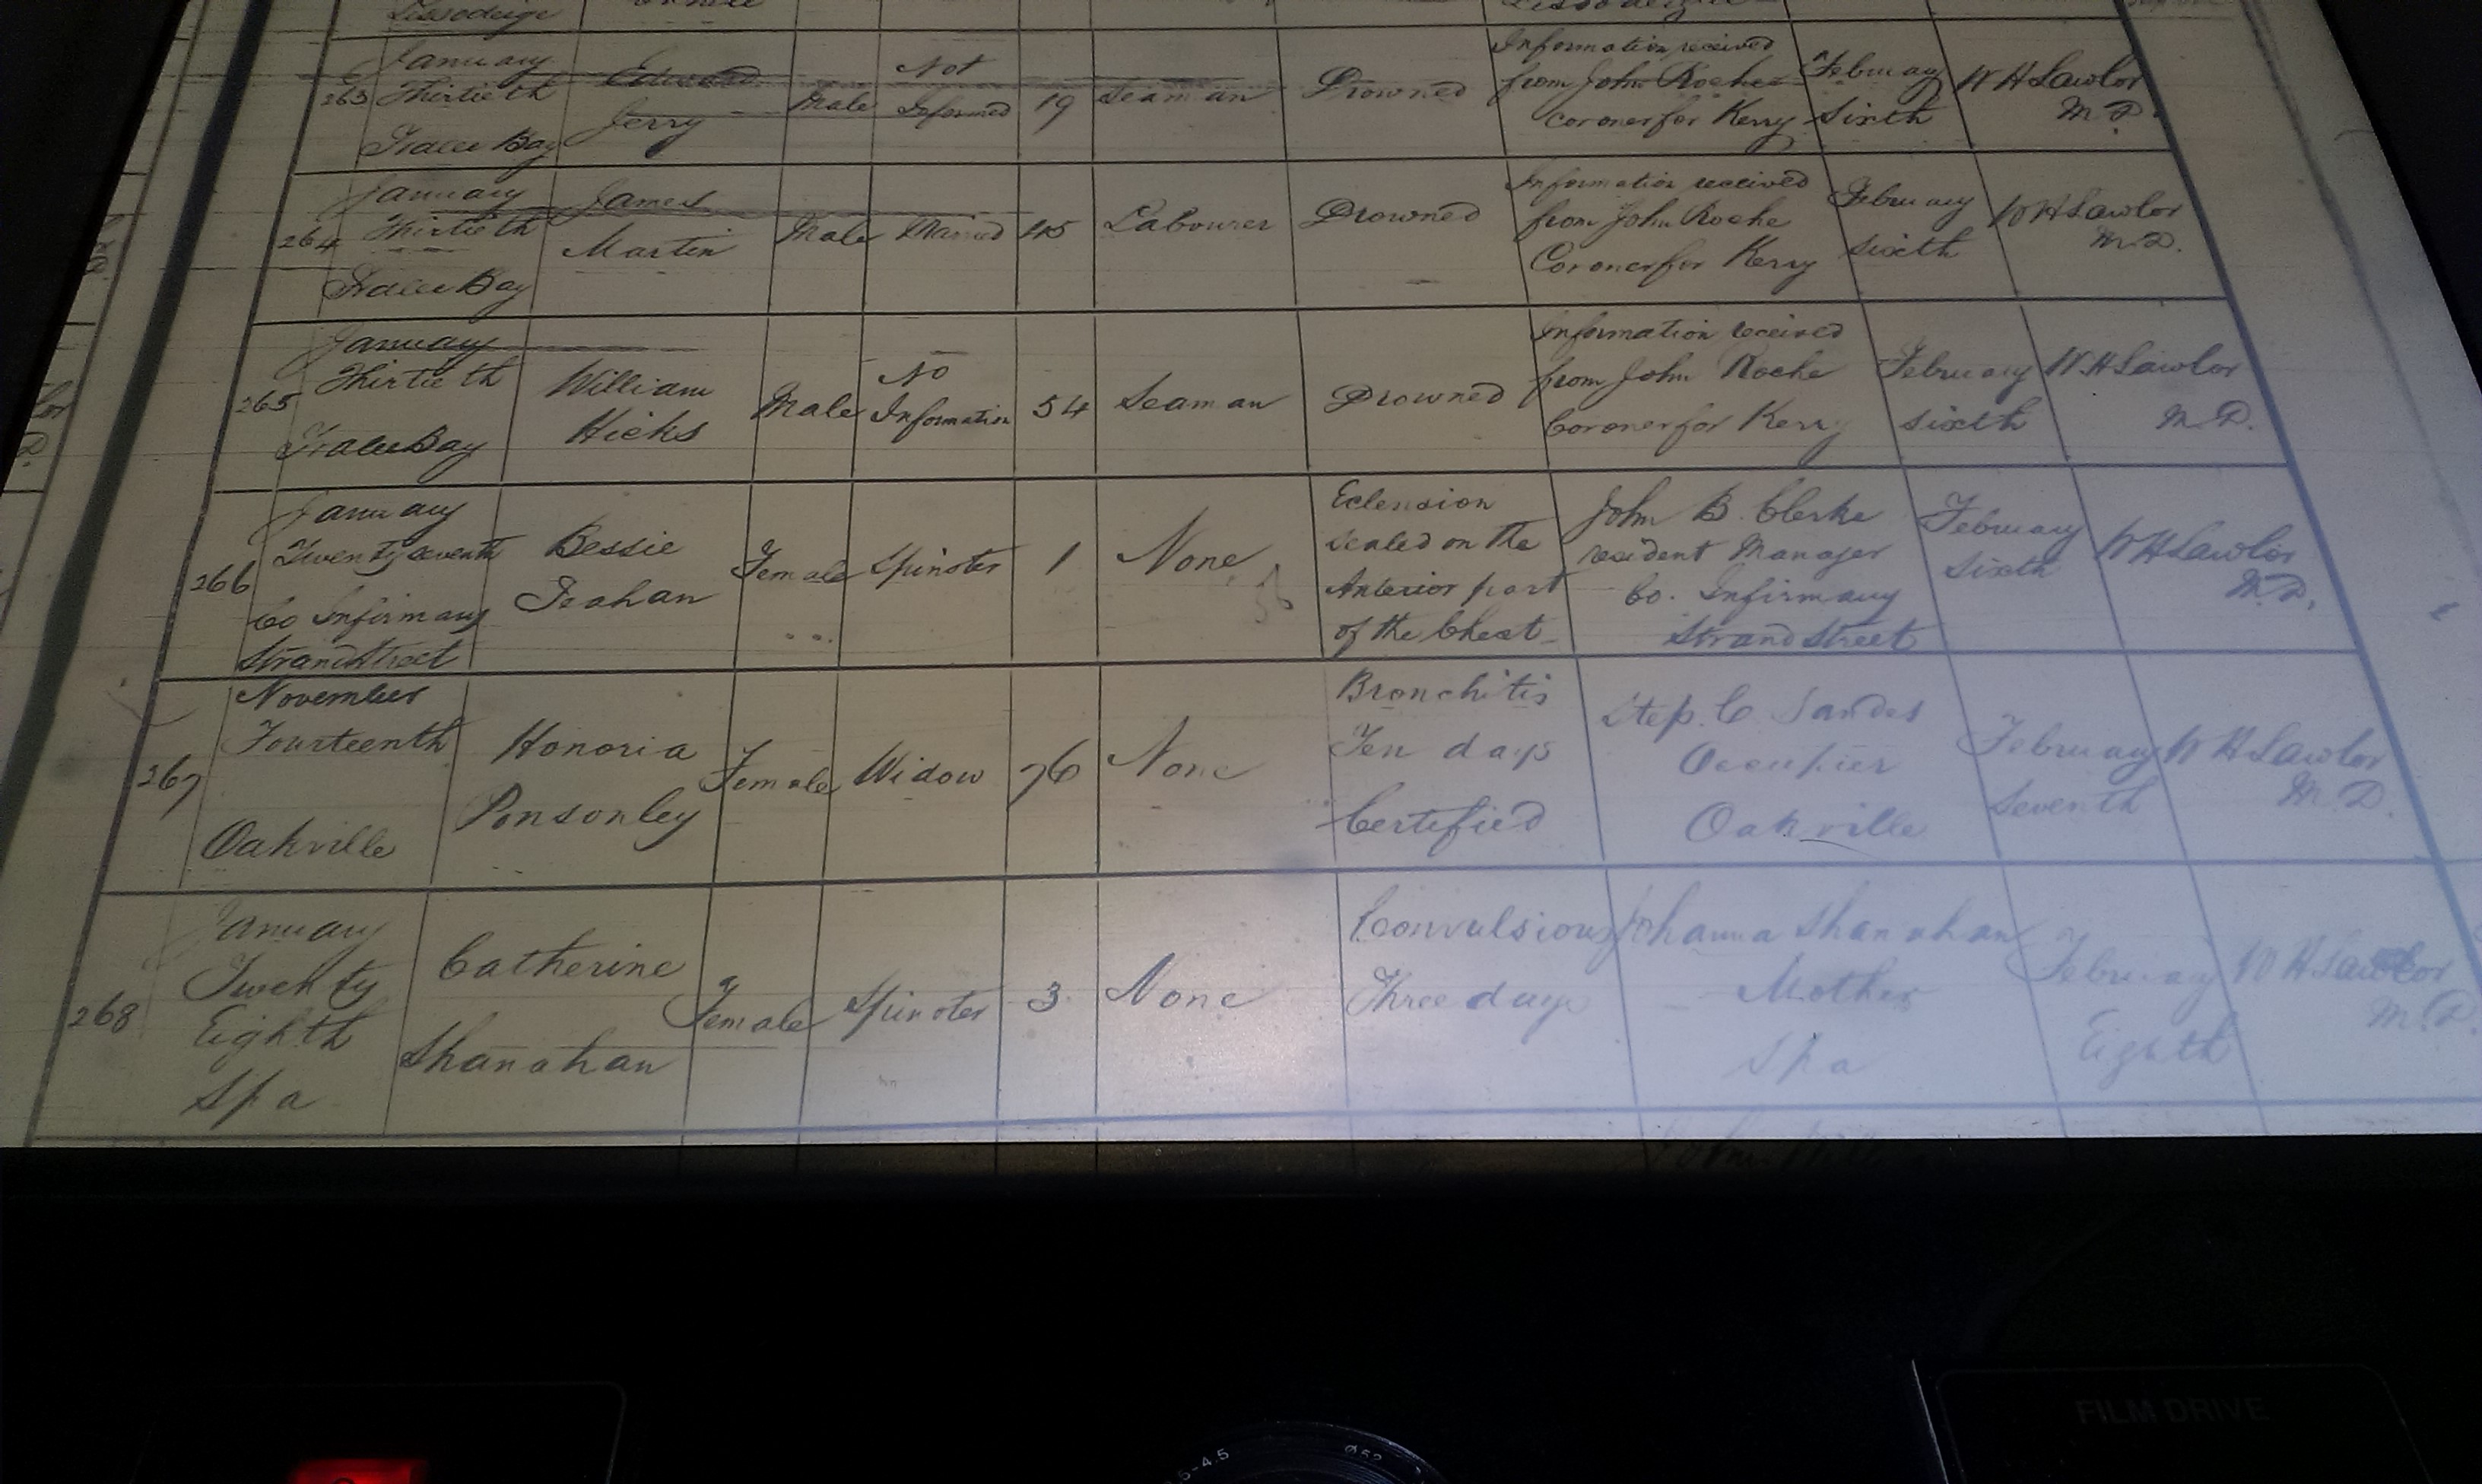 263
January
Thirtieth
Tralee Bay
Edward
Jerry
Male
Not
Informed
19
Seaman
Drowned
Information received
from John Roche
coroner for Kerry
February
Sixth
W H Lawlor
M D.
264
January
Thirtieth
Tralee Bay
James
Martin
Male
Married
45
Labourer
Drowned
Information received
from John Roche
Coroner for Kerry
February
sixth
W H Lawlor
M.D.
265
January
Thirtieth
Tralee Bay
William
Hicks
Male
No
Information
54
Seaman
Drowned
Information received
from John Roche
Coroner for Kerry
February
sixth
W. H Lawlor
M D.
266
January
Twenty seventh
Co Infirmary
Strand Street
Bessie
Teahan
Female
Spinster
1
None
sealed on the
Anterior part
of the Chest
John B. Clerke
resident Manager
Co. Infirmary
Strand Street
February
Sixth
W H Lawlor
M.D.
267
November
Fourteenth
Oakville
Honoria
Ponsonley
Female
Widow
76
None
Bronchitis
Ten days
Certified
Step. C Sandes
Occupier
Oakville
February
Seventh
W H Lawlor
M.D.
268
January
Twenty
Eighth
Spa
Catherine
Shanahan
Female
Spinster
3
None
Convulsions
Three days
Johanna Shanahan
Mother
Spa
February
Eighth
W H Lawlor
M.D.
FILM DRIVE
5-4.5
Ø52